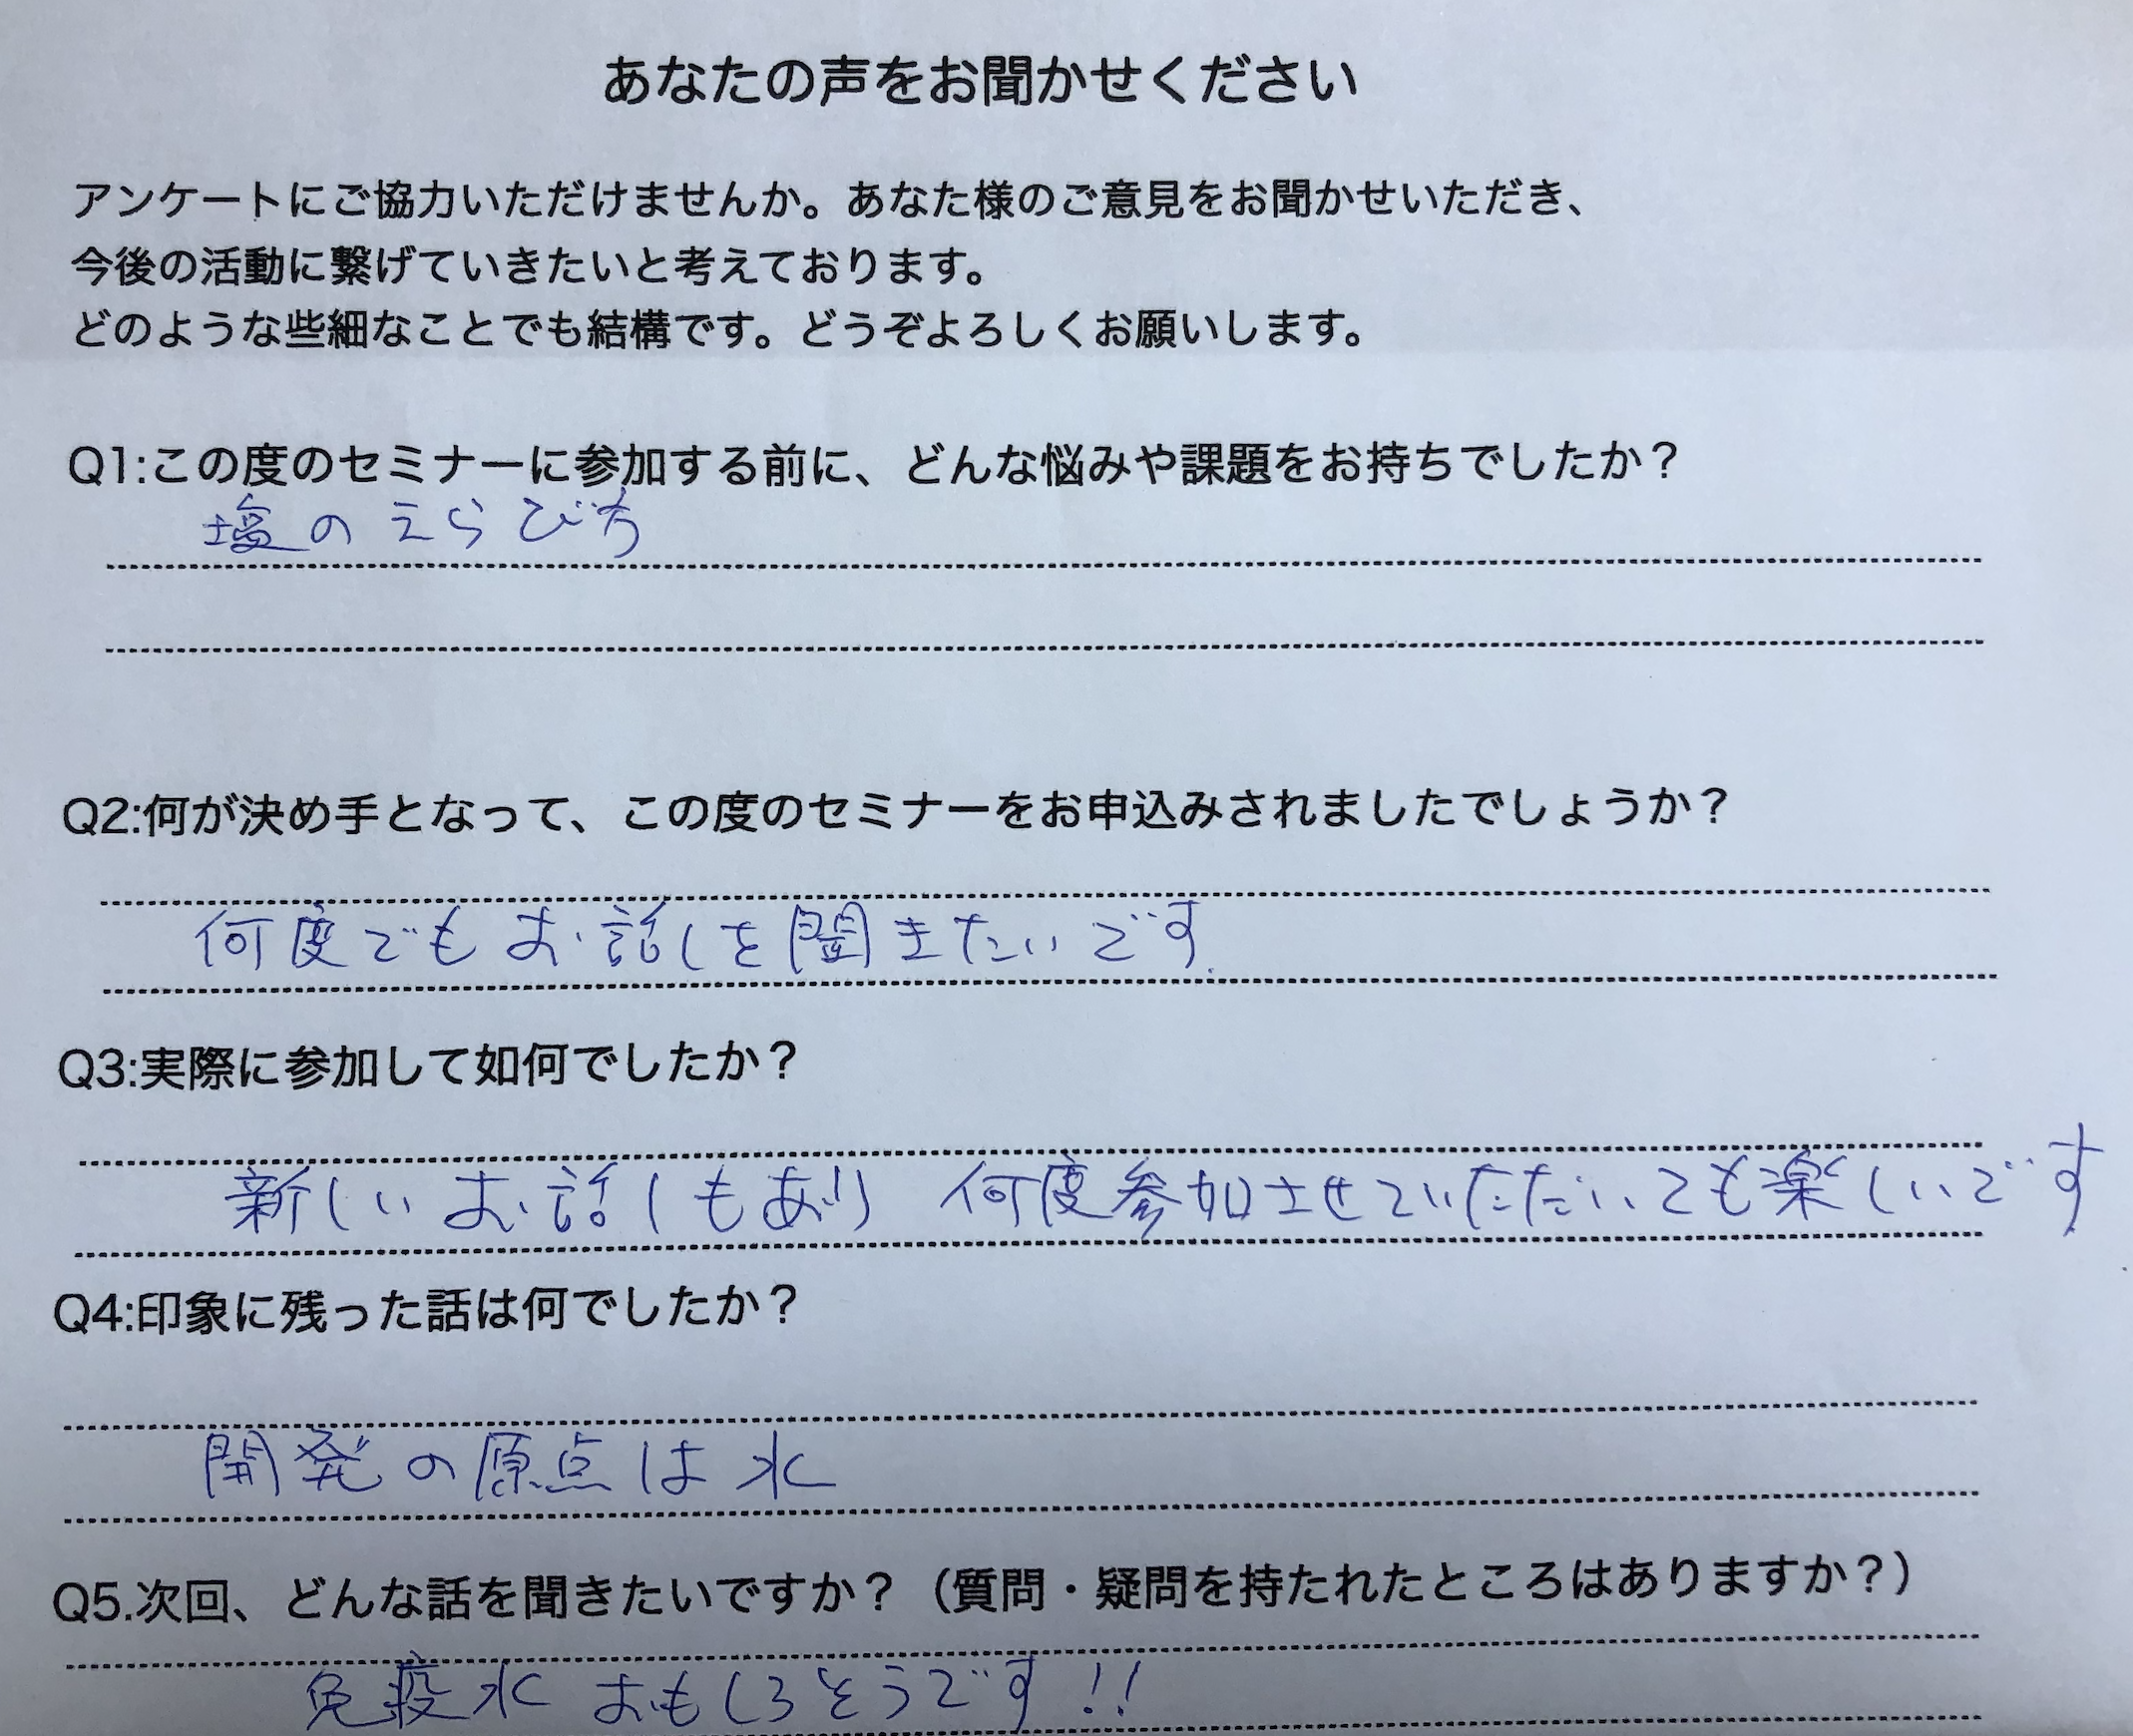 あなたの声をお聞かせください
アンケートにご協力いただけませんか。あなた様のご意見をお聞かせいただき、
今後の活動に繋げていきたいと考えております。
どのような些細なことでも結構です。どうぞよろしくお願いします。
Q1:この度のセミナーに参加する前に、どんな悩みや課題をお持ちでしたか？
塩のえらび方
Q2:何が決め手となって、この度のセミナーをお申込みされましたでしょうか？
何度でもお話しを聞きたいです.
Q3:実際に参加して如何でしたか？
新しいお話しもあり 何度参加させていただいても楽しいです
Q4:印象に残った話は何でしたか？
開発の原点は水
Q5.次回、どんな話を聞きたいですか？（質問・疑問を持たれたところはありますか？）
免疫水 おもしろそうです!!